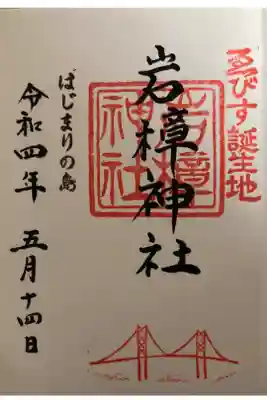 ゑびす誕生地
岩樟神社
岩樟神社
はじまりの島
令和四年 五月十四日